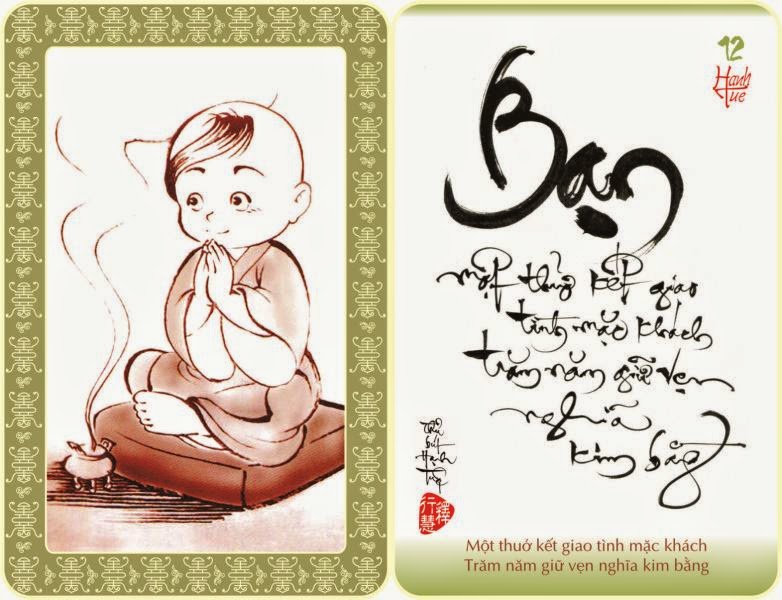 12
Hanh
Hue
Bạn
một thuở kết giao
tình mặc khách
trăm năm giữ vẹn
nghĩa
kim bằng
Thủ bút
Hạnh
Tuệ
釋行慧
Một thuở kết giao tình mặc khách
Trăm năm giữ vẹn nghĩa kim bằng